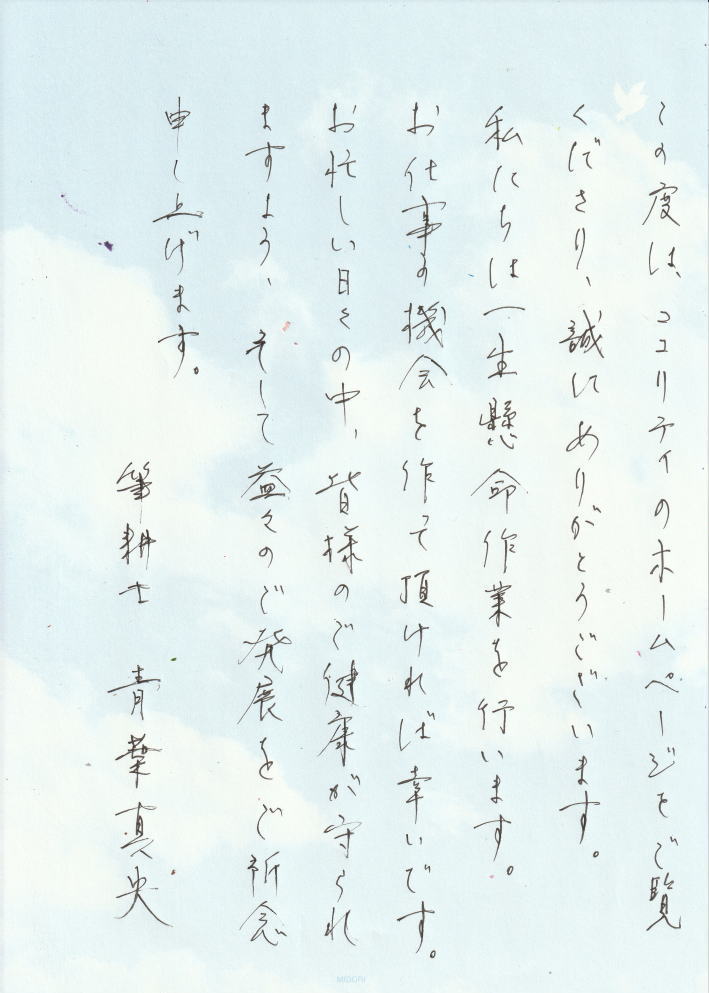 この度は、ココリティのホームページをご覧
くださり、誠にありがとうございます。
私たちは一生懸命作業を行います。
お仕事の機会を作って頂ければ幸いです。
お忙しい日々の中、皆様のご健康が守られ
ますよう、そして益々のご発展をご祈念
申し上げます。
筆耕士 青葉真央
MIDORI